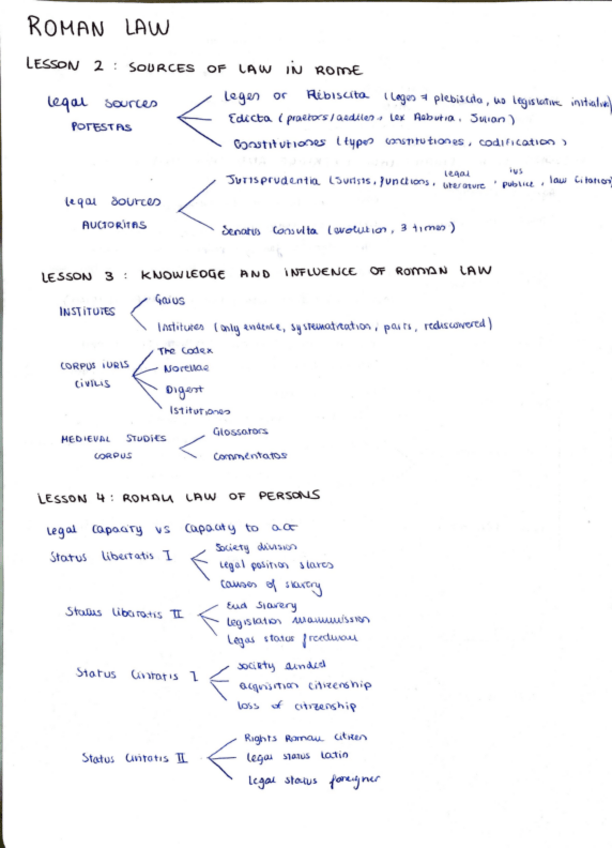 ROMAN LAW
LESSON 2 : SOURCES OF LAW IN ROME
Legal sources
POTESTAS
Leges or Plebiscita (Leges & plebiscita, no legislative initiative)
Edicta (praetors/aediles, Lex Aebutia, Julian)
Constitutiones (types constitutiones, codification)
Legal sources
AUCTORITAS
Jurisprudentia (Jurists, functions, legal literature, ius publice, law citation)
Senatus Consulta (evolution, 3 times)
LESSON 3 : KNOWLEDGE AND INFLUENCE OF ROMAN LAW
INSTITUTES
Gaius
Institutes (only evidence, systematization, parts, rediscovered)
CORPUS IURIS
CIVILIS
The Codex
Novellae
Digest
Istitutiones
MEDIEVAL STUDIES
CORPUS
Glossators
Commentators
LESSON 4 : ROMAN LAW OF PERSONS
Legal capacity vs capacity to act
Status libertatis I
Society division
Legal position slaves
Causes of slavery
Status libertatis II
End Slavery
Legislation manumission
Legal status freedman
Status Civitatis I
Society divided
acquisition citizenship
loss of citizenship
Status Civitatis II
Rights Roman citizen
Legal status Latin
Legal status foreigner